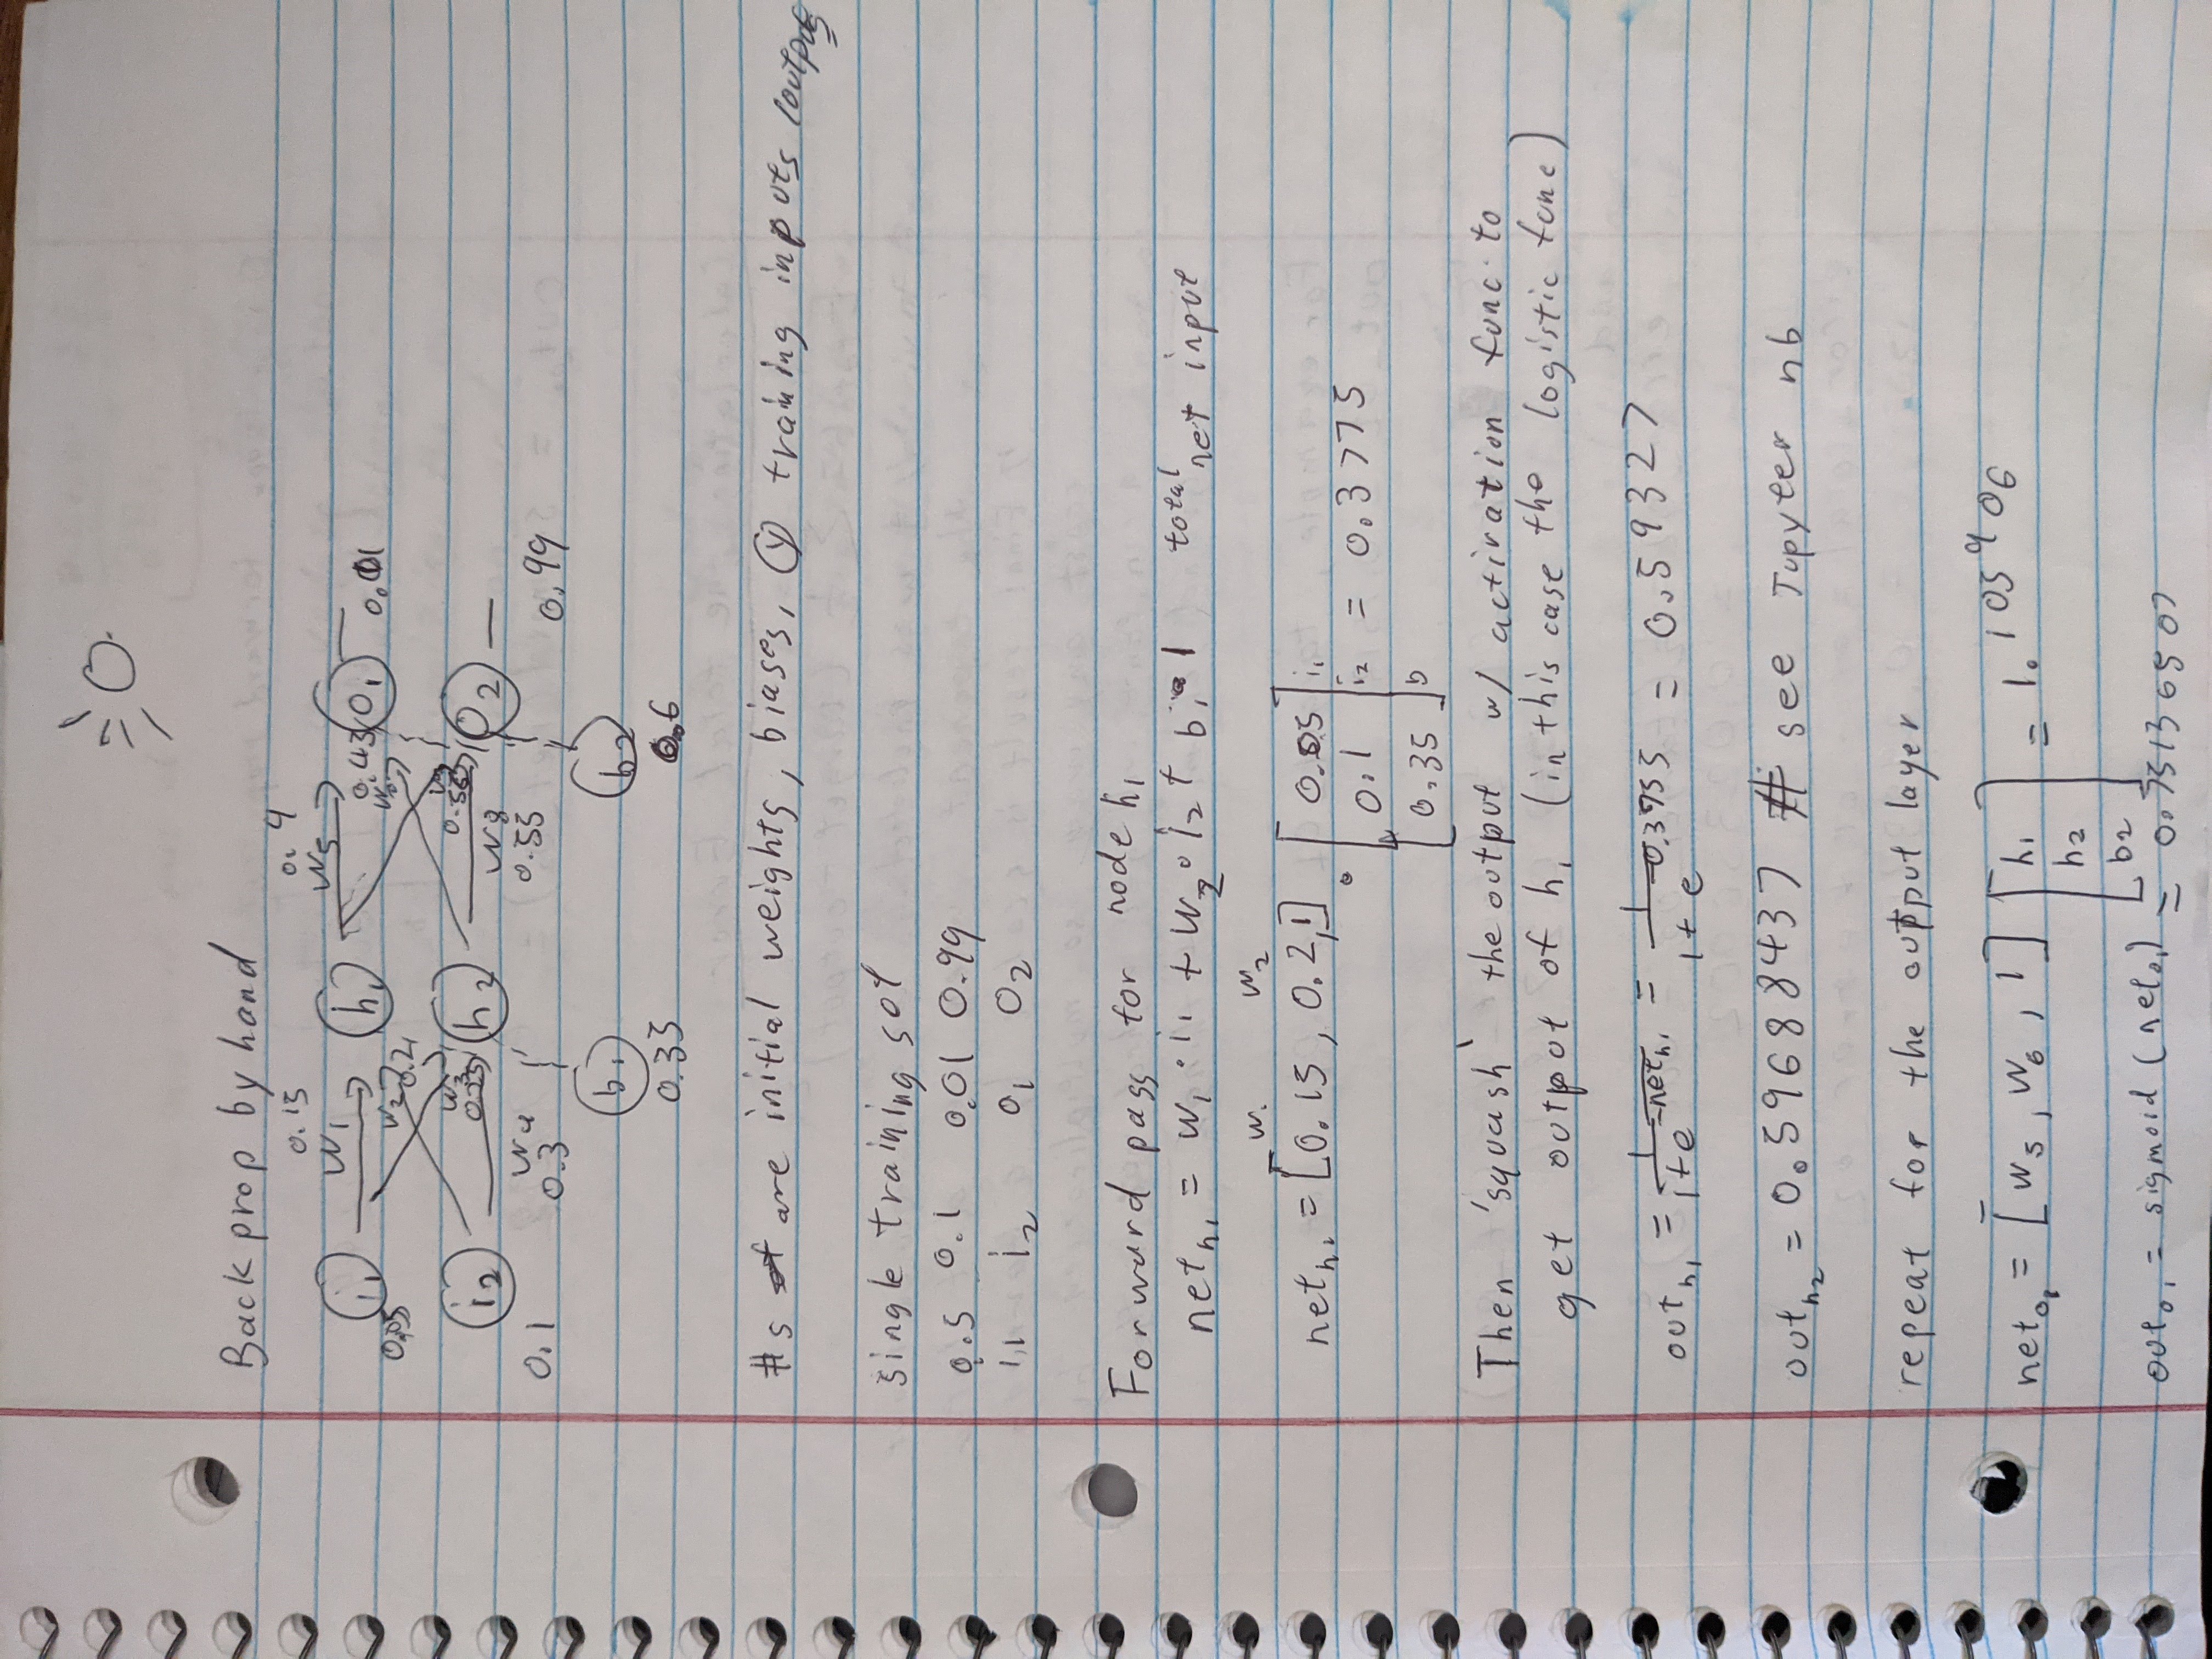 Back prop by hand
0.15 0.4
i1 w1 h1 w5 O1 0.01
0.05 w2 0.2 0.43
w3 0.25 0.55
i2 h2 O2
0.1 w4 w8 0.99
0.3 0.55
b1 b2
0.35 0.6
#s are initial weights, biases, training inputs/outputs
single training set
0.5 0.1 0.01 0.99
i1 i2 o1 O2
Forward pass for node h1
net h1 = w1 · i1 + w2 · i2 + b1 · 1 total net input
w1 w2
net h1 = [0.15, 0.2, 1] · [0.05 i1
0.1 i2 = 0.3775
0.35] b
Then 'squash' the output w/ activation func. to
get output of h1 (in this case the logistic func)
out h1 = 1/(1+e^-net h1) = 1/(1+e^-0.3755) = 0.59327
out h2 = 0.59688437 # see Jupyter nb
repeat for the output layer
net o1 = [w5, w6, 1] [h1
h2 = 1.105906
b2]
out o1 = sigmoid (net o1) = 0.75136507